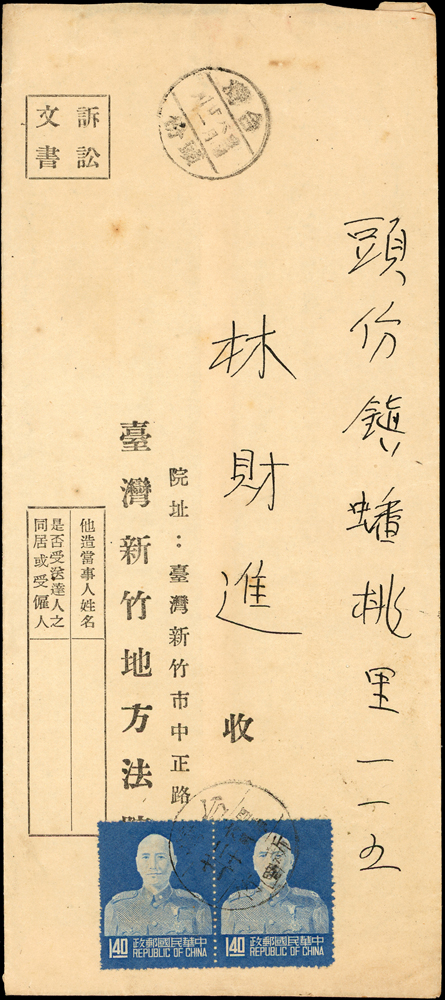 頭份鎮蟠桃里一一五
林財進 收
院址：臺灣新竹市中正路
臺灣新竹地方法院
訴訟
文書
他造當事人姓名
是否受送達人之
同居或受僱人
臺灣
頭份
中華民國郵政
REPUBLIC OF CHINA
140
中華民國郵政
REPUBLIC OF CHINA
140